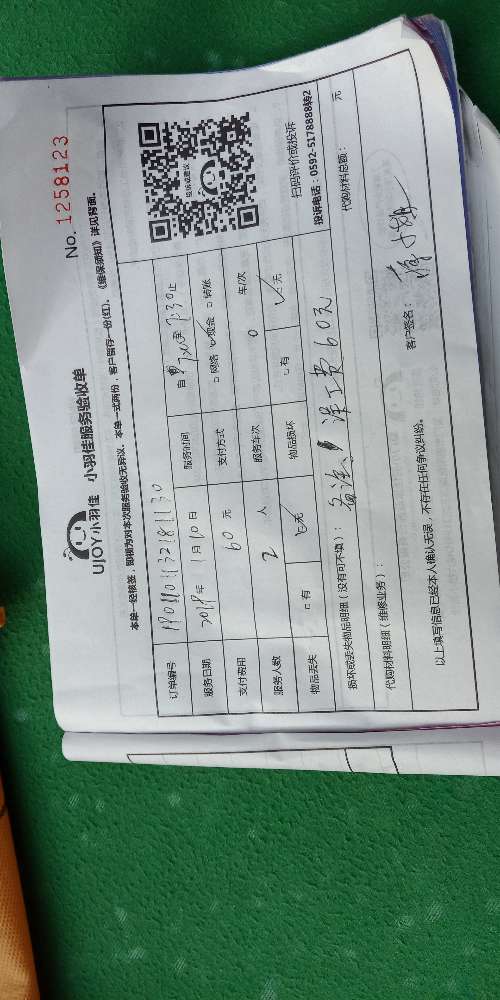 UJOY小羽佳 小羽佳服务验收单 No. 1258123
本单一经核签，即视为对本次服务验收无异议。本单一式两份，客户留存一份(红)。《维保须知》详见背面。
订单编号
服务日期 年 1月10日 服务时间 自 至 7:30止
支付费用 60元 支付方式 □网络 □现金 □转账
服务人数 2 人 服务车次 0 车/次
物品丢失 □有 □无 物品损坏 □有 □无
投诉或建议
扫码评价或投诉
投诉电话：0592-5178888转2
损坏或丢失物品明细（没有可不填）： 备注： 误工费60元
代购材料明细（维修业务）： 代购材料总额： 元
以上填写信息已经本人确认无误，不存在任何争议纠纷。 客户签名：